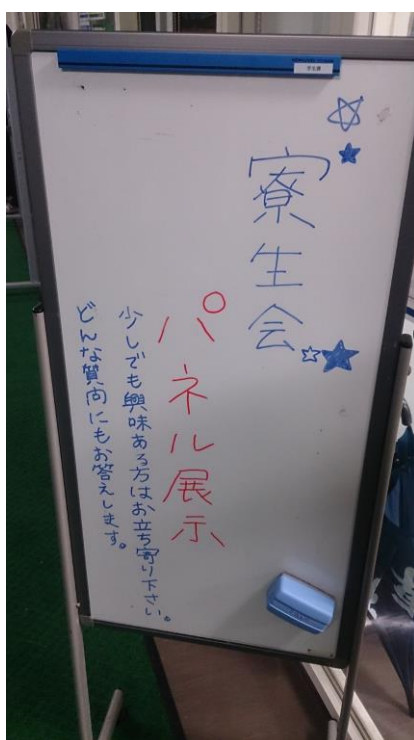 寮生会
パネル展示
少しでも興味ある方はお立ち寄り下さい。
どんな質問にもお答えします。